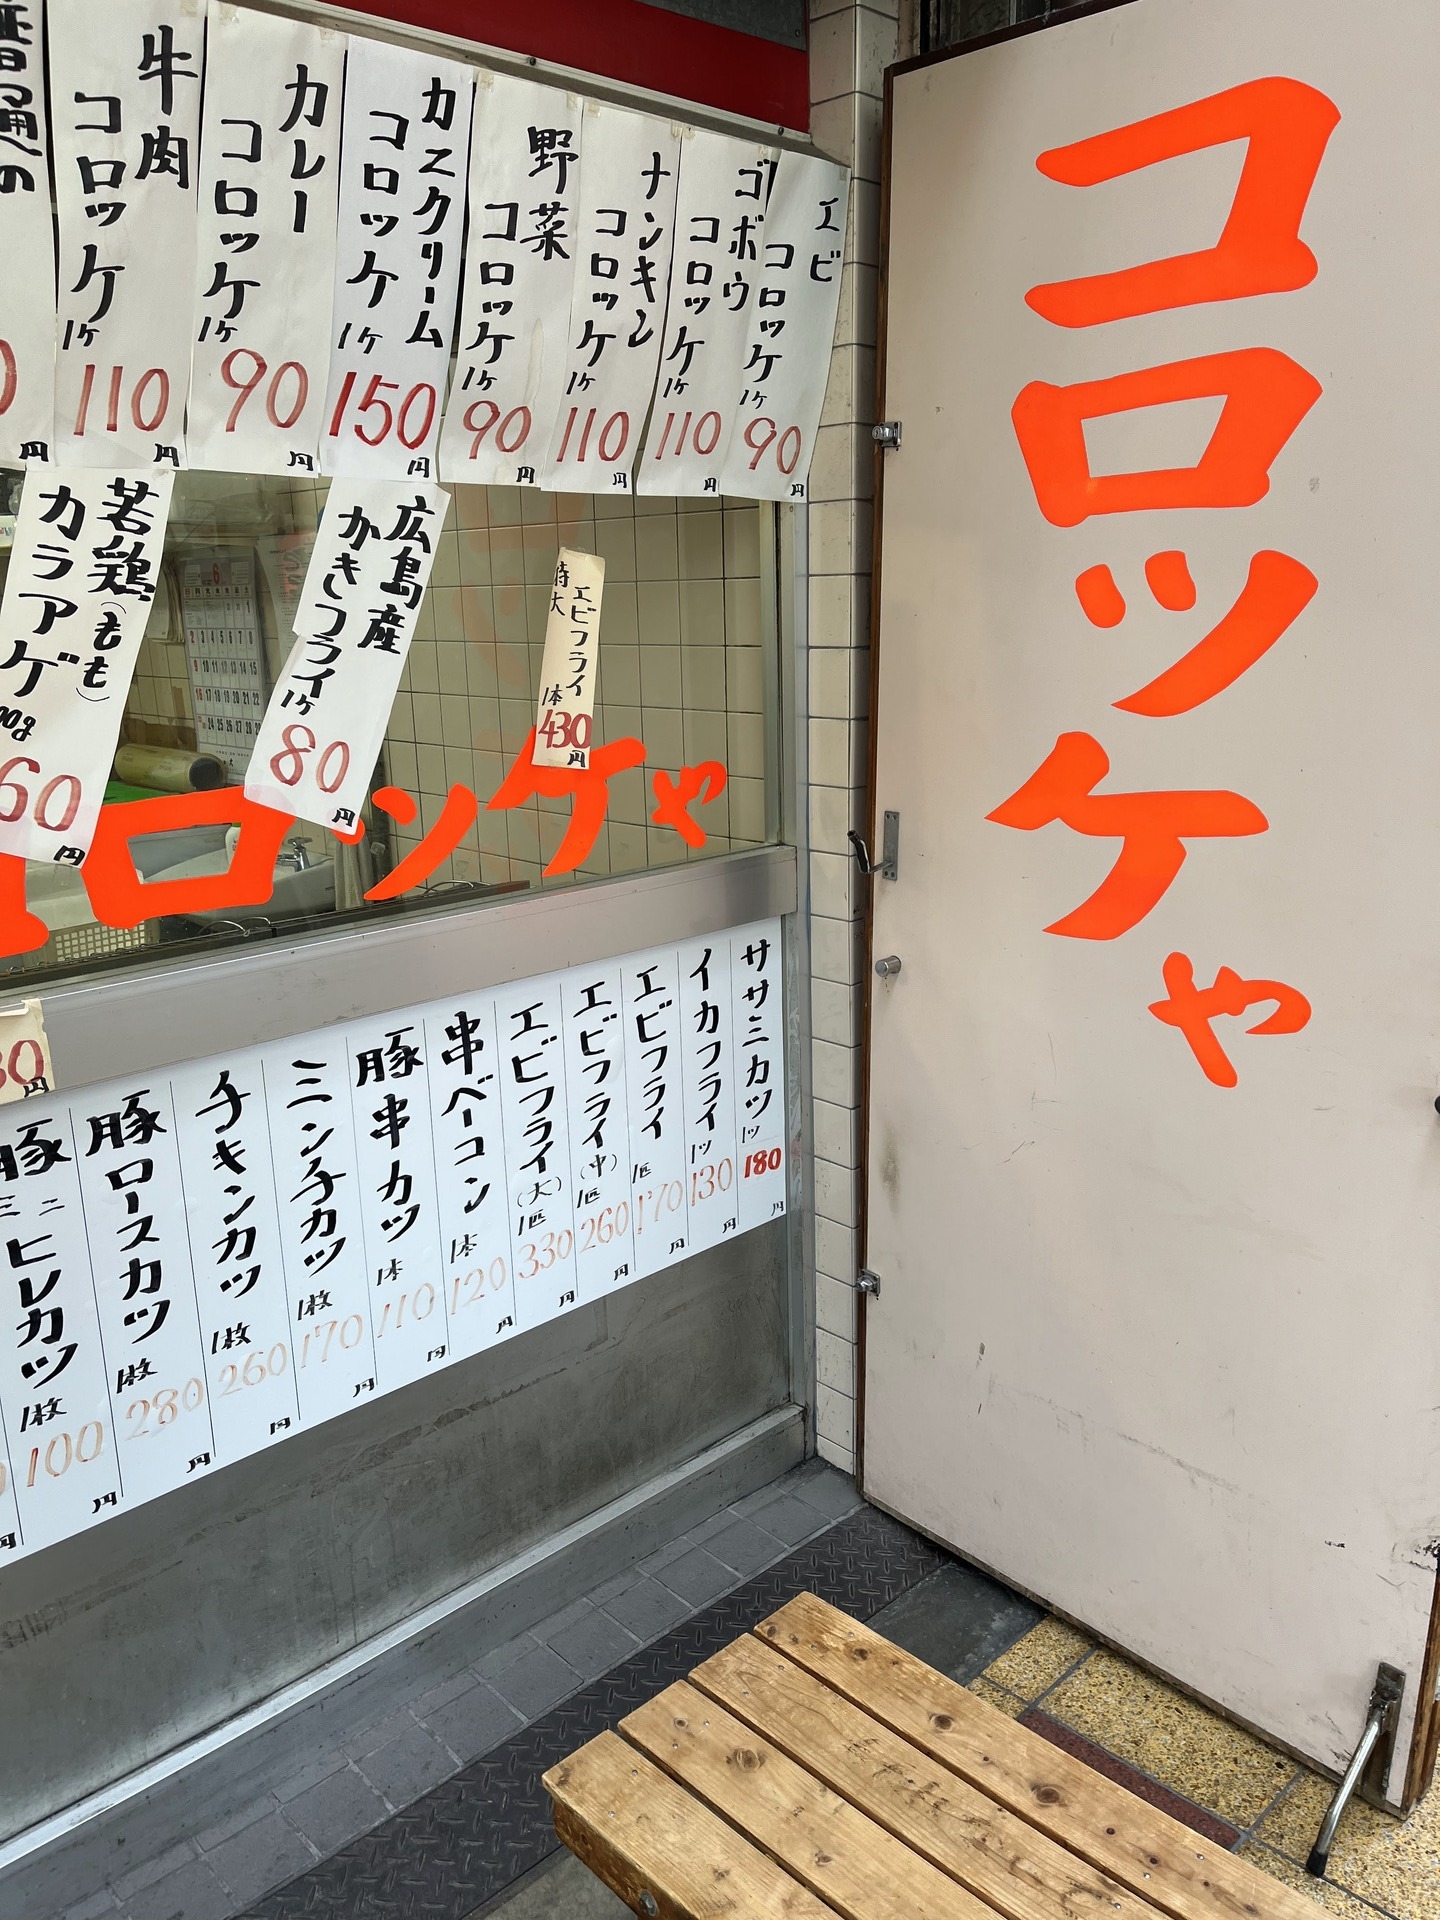 コロッケや
エビ
コロッケ
1ケ
90
円
ゴボウ
コロッケ
1ケ
110
円
ナンキン
コロッケ
1ケ
110
円
野菜
コロッケ
1ケ
90
円
カニクリーム
コロッケ
1ケ
150
円
カレー
コロッケ
1ケ
90
円
牛肉
コロッケ
1ケ
110
円
普通の
円
特大
エビフライ
1本
430
円
広島産
かきフライ
1ケ
80
円
若鶏(もも)
カラアゲ
60
円
ロッケや
ササミカツ
1ツ
180
円
イカフライ
1ツ
130
円
エビフライ
1匹
170
円
エビフライ(中)
1匹
260
円
エビフライ(大)
1匹
330
円
串ベーコン
1本
120
円
豚串カツ
1本
110
円
ミンチカツ
1枚
170
円
チキンカツ
1枚
260
円
豚ロースカツ
1枚
280
円
豚ミニヒレカツ
1枚
100
円
円
30
円
6